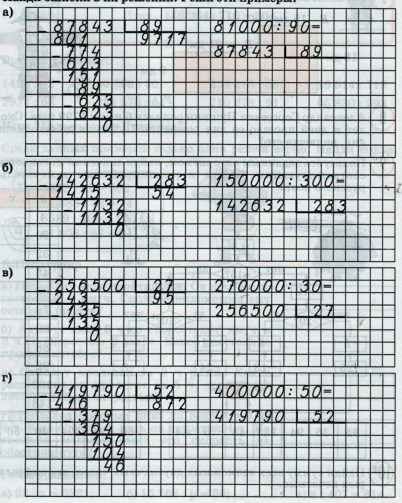 а)
87843 89 81000:90=
801 9717 87843 89
774
623
151
89
623
623
0
б)
142632 283 150000:300=
1415 54 142632 283
1132
1132
0
в)
256500 27 270000:30=
243 95 256500 27
135
135
0
г)
419790 52 400000:50=
416 872 419790 52
379
364
150
104
46